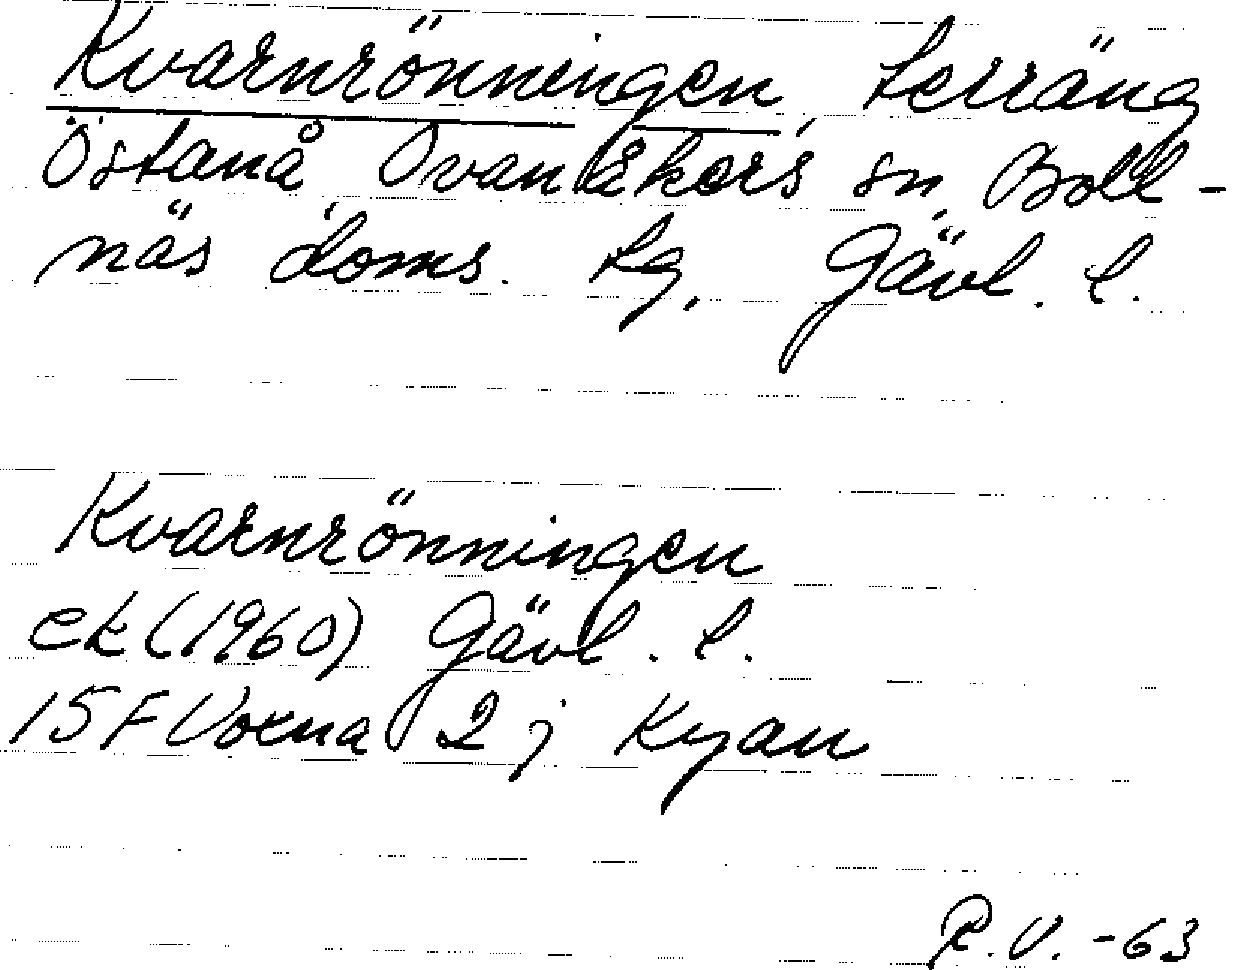 Kvarnrönningen, terräng
Östanå, Ovanåkers sn, Boll-
näs doms. tg, Gävl. l.
Kvarnrönningen
ek (1960) Gävl. l.
15F Voxna 2j Kyan
R.V. -63